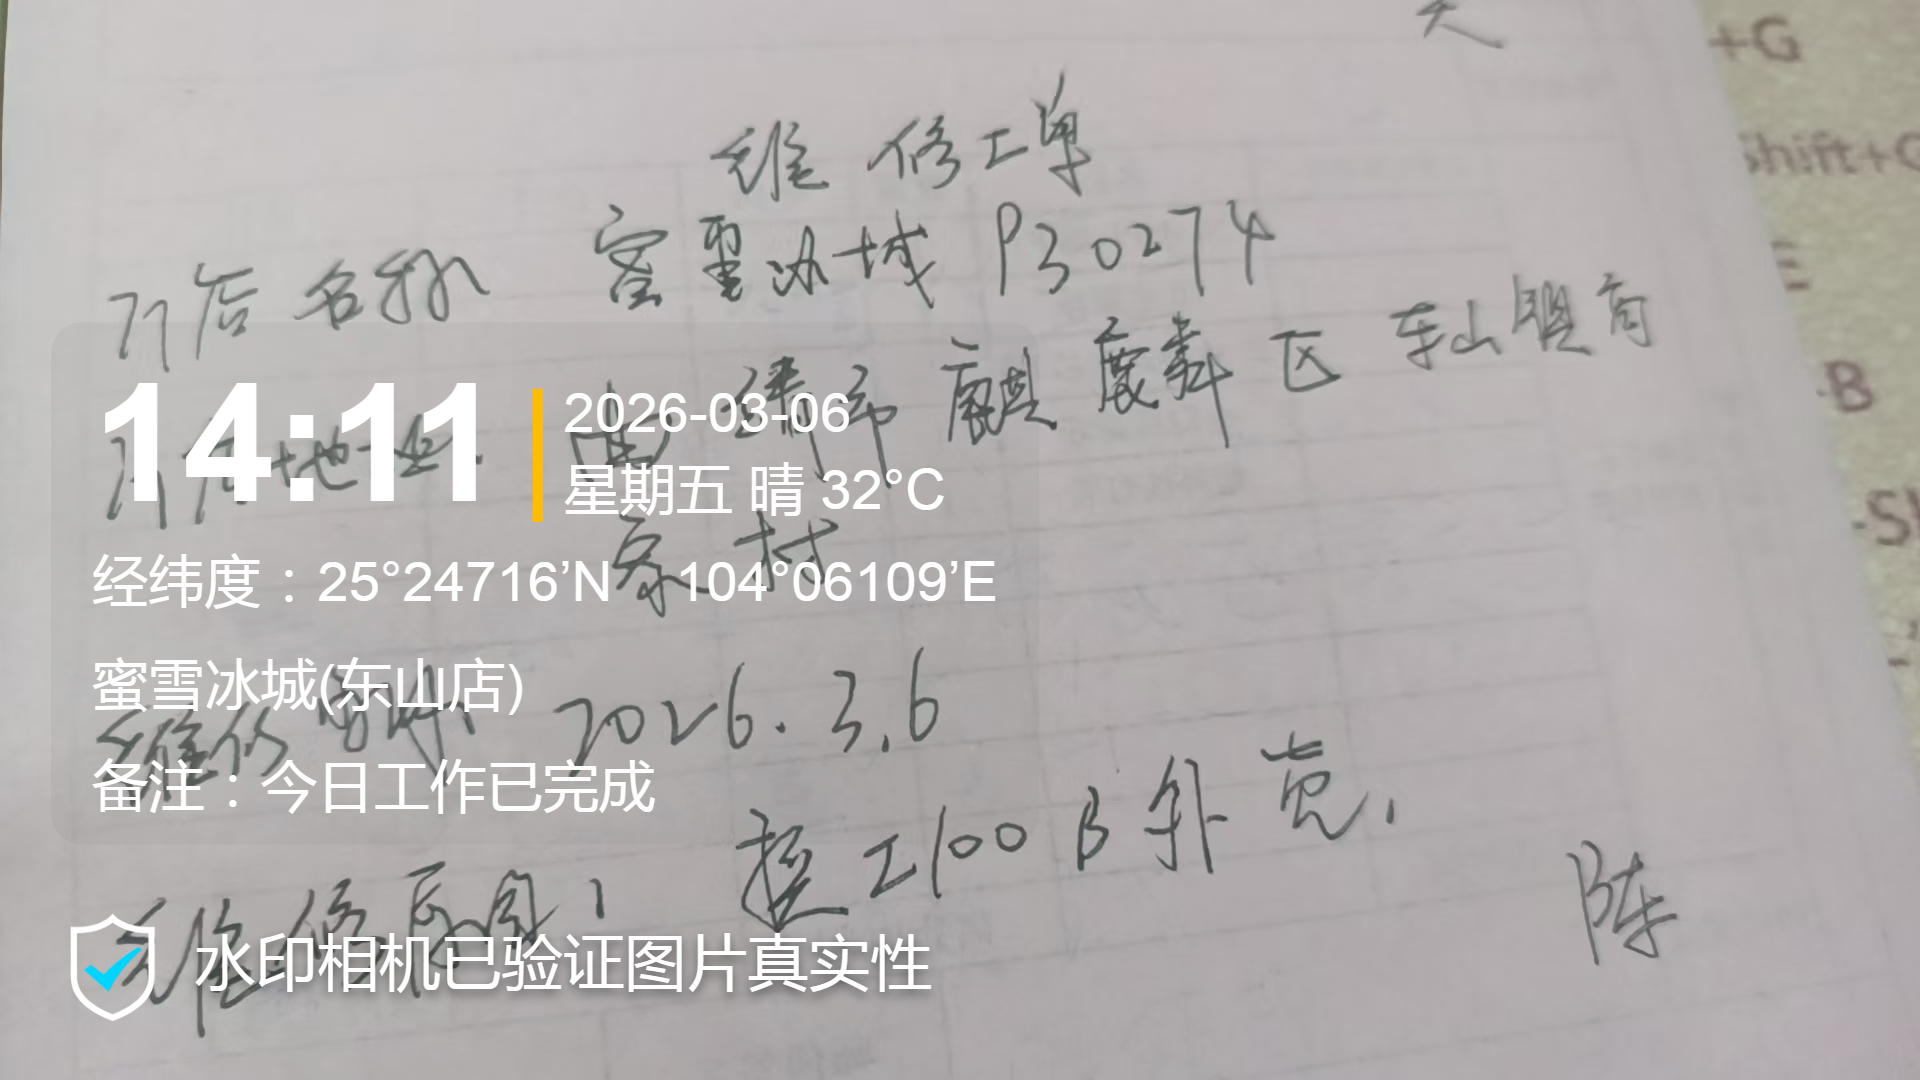 维修工单
门店名称 蜜雪冰城 P30274
门店地址 曲靖市麒麟区东山镇
家村
维修时间: 2026.3.6
维修原因: 工100B补
陈
14:11
2026-03-06
星期五 晴 32°C
经纬度：25°24716’N 104°06109’E
蜜雪冰城(东山店)
备注：今日工作已完成
水印相机已验证图片真实性
+G
Shift+G
E
-B